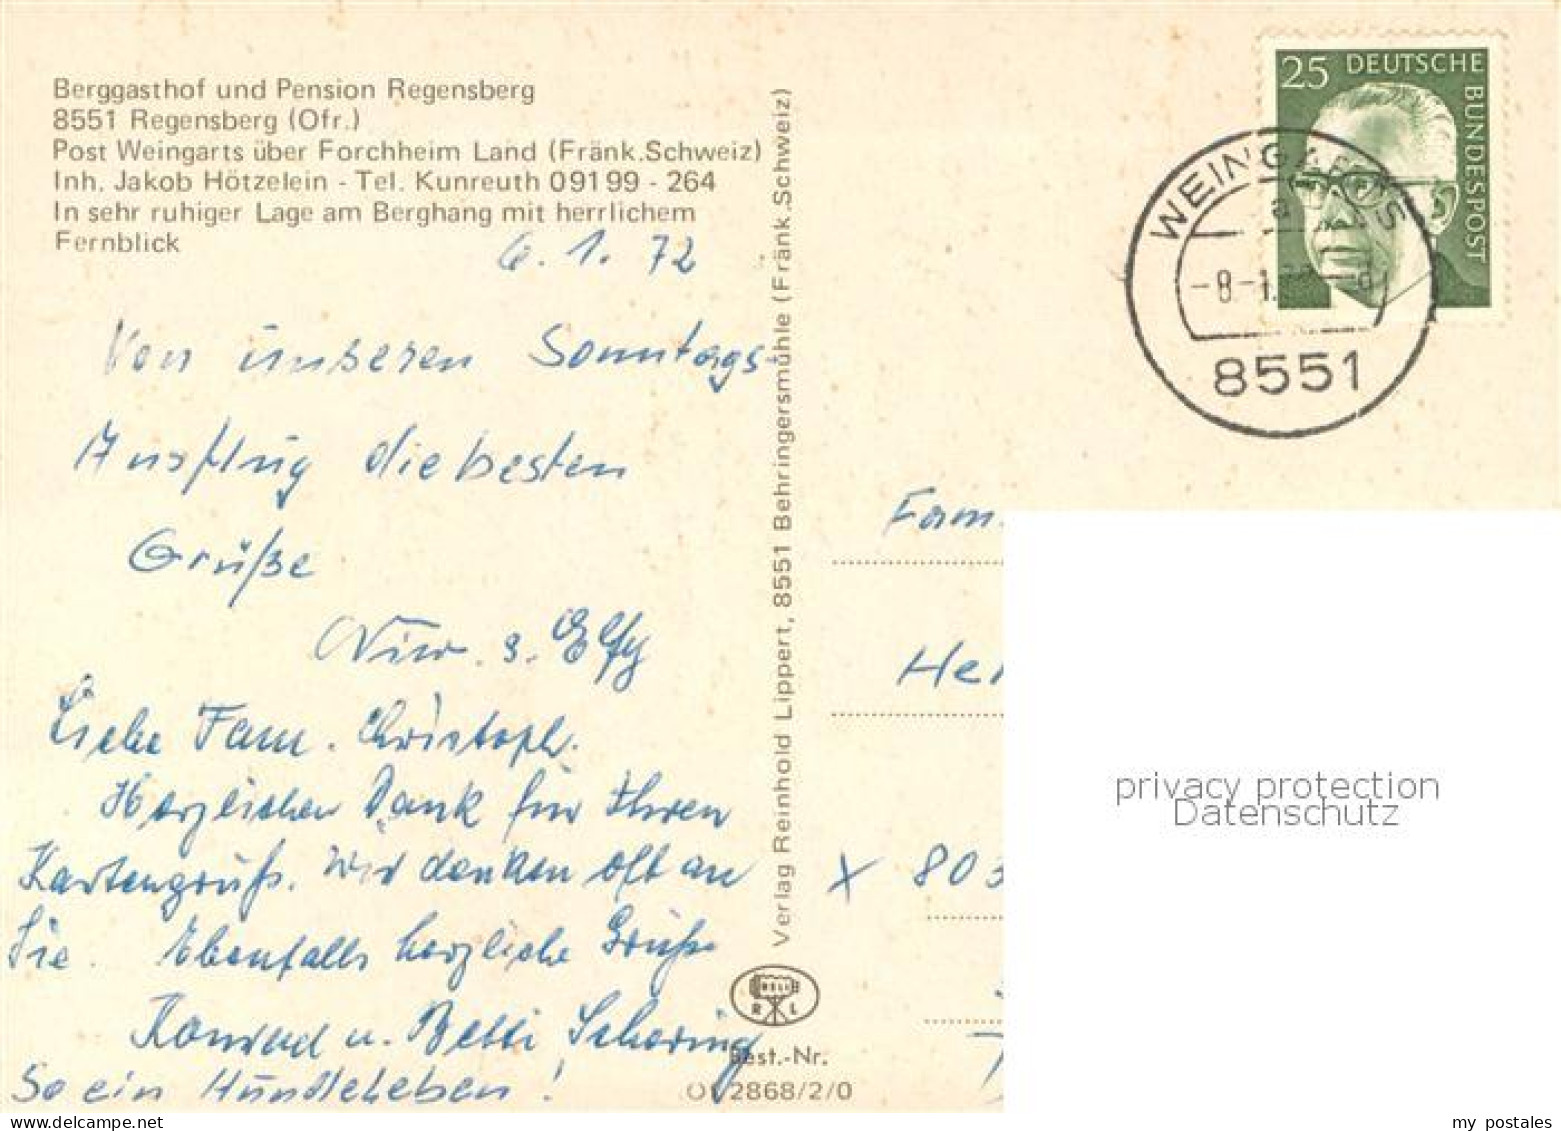 Berggasthof und Pension Regensberg
8551 Regensberg (Ofr.)
Post Weingarts über Forchheim Land (Fränk.Schweiz)
Inh. Jakob Hötzelein - Tel. Kunreuth 09199 - 264
In sehr ruhiger Lage am Berghang mit herrlichem
Fernblick
6.1.72
Von unseren Sonntags-
Ausflug die besten
Grüße
Elfy
Liebe Fam. Christoph.
Herzlichen Dank für Ihren
Kartengruß. Wir denken oft an
Sie. Ebenfalls herzliche Grüße
Konrad u. Betti Schoring
So ein Hundeleben!
Verlag Reinhold Lippert, 8551 Behringersmühle (Fränk.Schweiz)
RELI
R L
Best.-Nr.
2868/2/0
25 DEUTSCHE
BUNDESPOST
WEINGARTS
a
-8-1.
8551
Fam.
He
X 803
privacy protection
Datenschutz
my postales